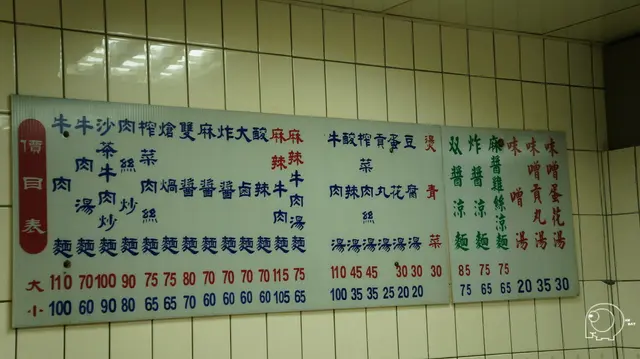 價目表
牛肉麵
牛肉湯麵
沙茶牛肉炒麵
肉絲炒麵
榨菜肉絲麵
熗鍋麵
雙醬麵
麻醬麵
炸醬麵
大滷麵
酸辣麵
麻辣牛肉麵
麻辣牛肉湯麵
大 110 70 100 90 75 75 80 70 70 70 70 115 75
小 100 60 90 80 65 65 70 60 60 60 60 105 65
牛肉湯
酸辣湯
榨菜肉絲湯
貢丸湯
蛋花湯
豆腐湯
燙青菜
110 45 45 30 30 30
100 35 35 25 20 20
双醬涼麵
炸醬涼麵
麻醬雞絲涼麵
味噌湯
味噌貢丸湯
味噌蛋花湯
85 75 75
75 65 65 20 35 30